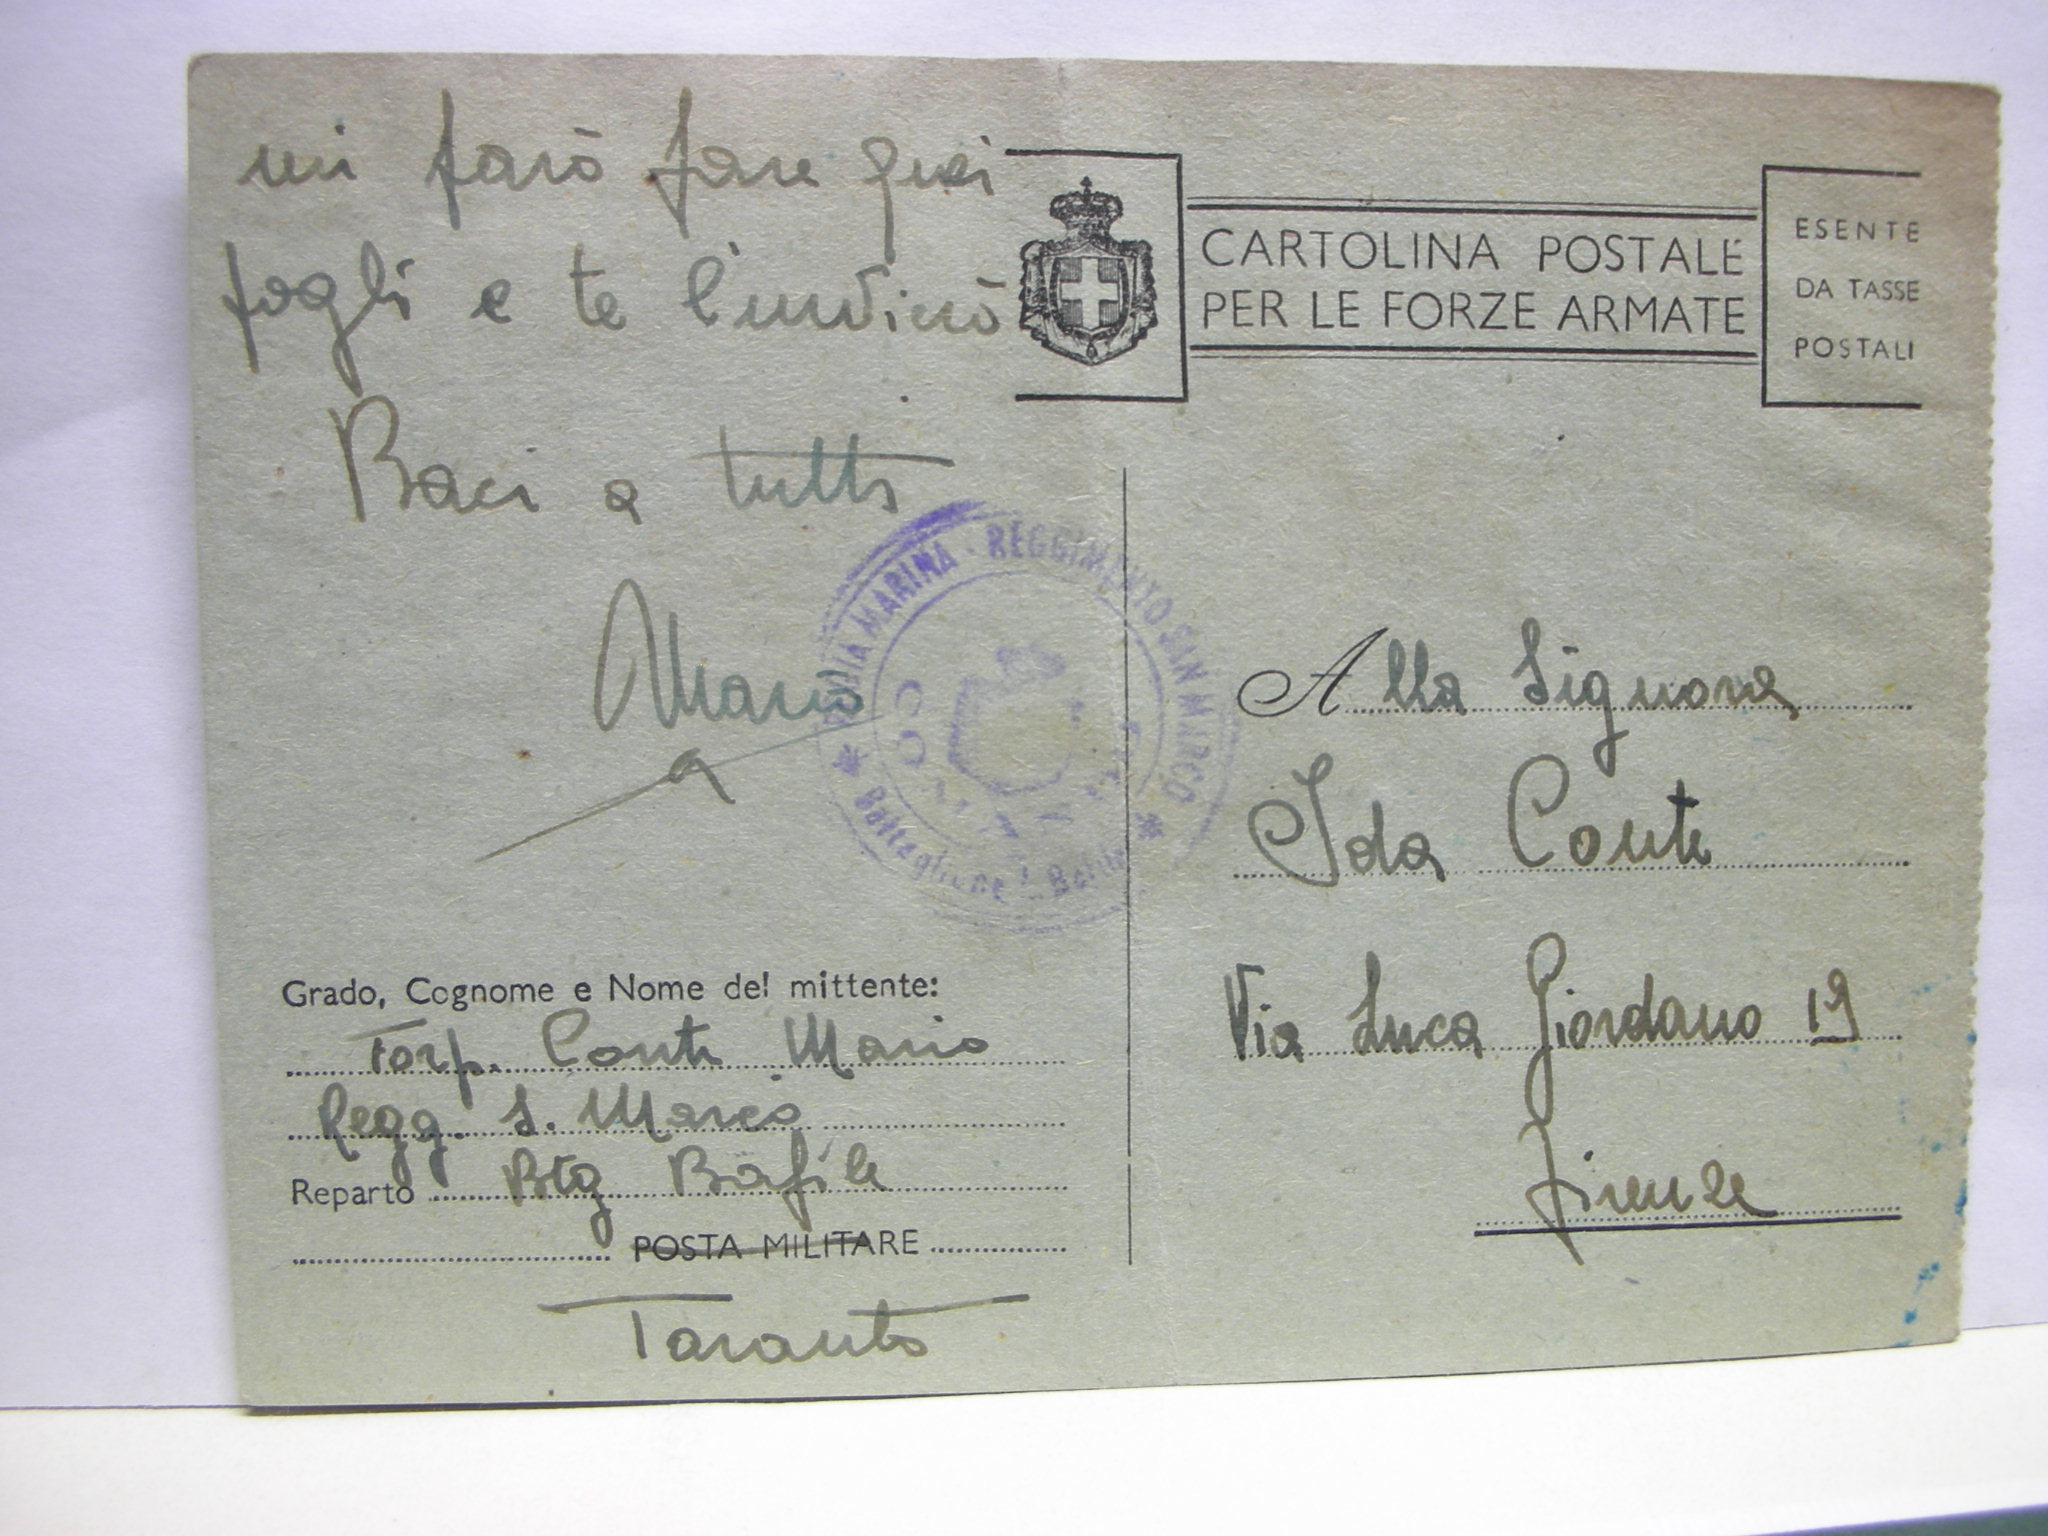 mi farò fare quei
fogli e te l'invierò
Baci a tutti
Mario
CARTOLINA POSTALE
PER LE FORZE ARMATE
ESENTE
DA TASSE
POSTALI
MARINA - REGGIMENTO SAN MARCO
Battaglione
Alla Signora
Ida Conte
Via Luca Giordano 19
Firenze
Grado, Cognome e Nome del mittente:
Torp. Conte Mario
Regg. S. Marco
Reparto Btg Bafile
POSTA MILITARE
Taranto